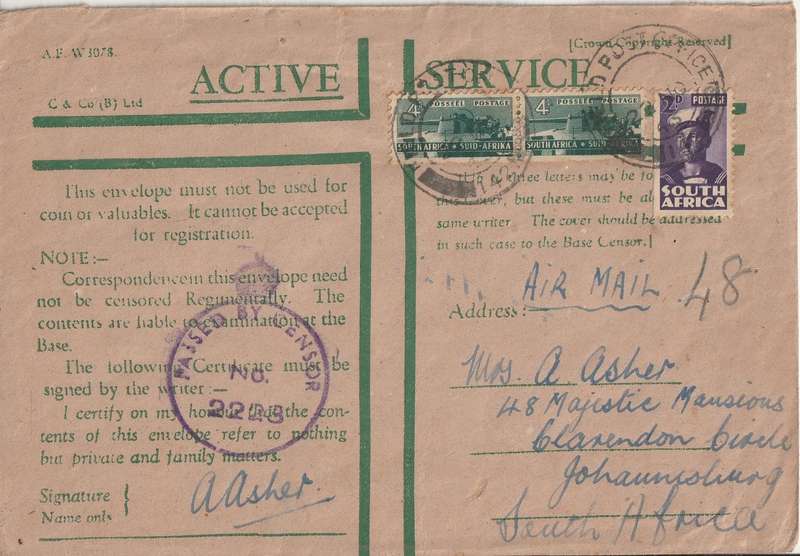 A.F. W3078.
[Crown Copyright Reserved]
ACTIVE SERVICE
C & Co (B) Ltd
4D POSSEEL POSTAGE
SOUTH AFRICA • SUID-AFRIKA
4D POSSEEL POSTAGE
SOUTH AFRICA • SUID-AFRIKA
POSTAGE
SOUTH
AFRICA
POST OFFICE
This envelope must not be used for
coin or valuables. It cannot be accepted
for registration.
NOTE:—
Correspondence in this envelope need
not be censored Regimentally. The
contents are liable to examination at the
Base.
The following Certificate must be
signed by the writer :—
I certify on my honour that the con-
tents of this envelope refer to nothing
but private and family matters.
Signature
Name only
A Asher.
PASSED BY CENSOR
No.
three letters may be
but these must be
same writer. The cover should be addressed
in such case to the Base Censor.]
AIR MAIL
48
Address:
Mrs. A Asher
48 Majestic Mansions
Clarendon Circle
Johannesburg
South Africa